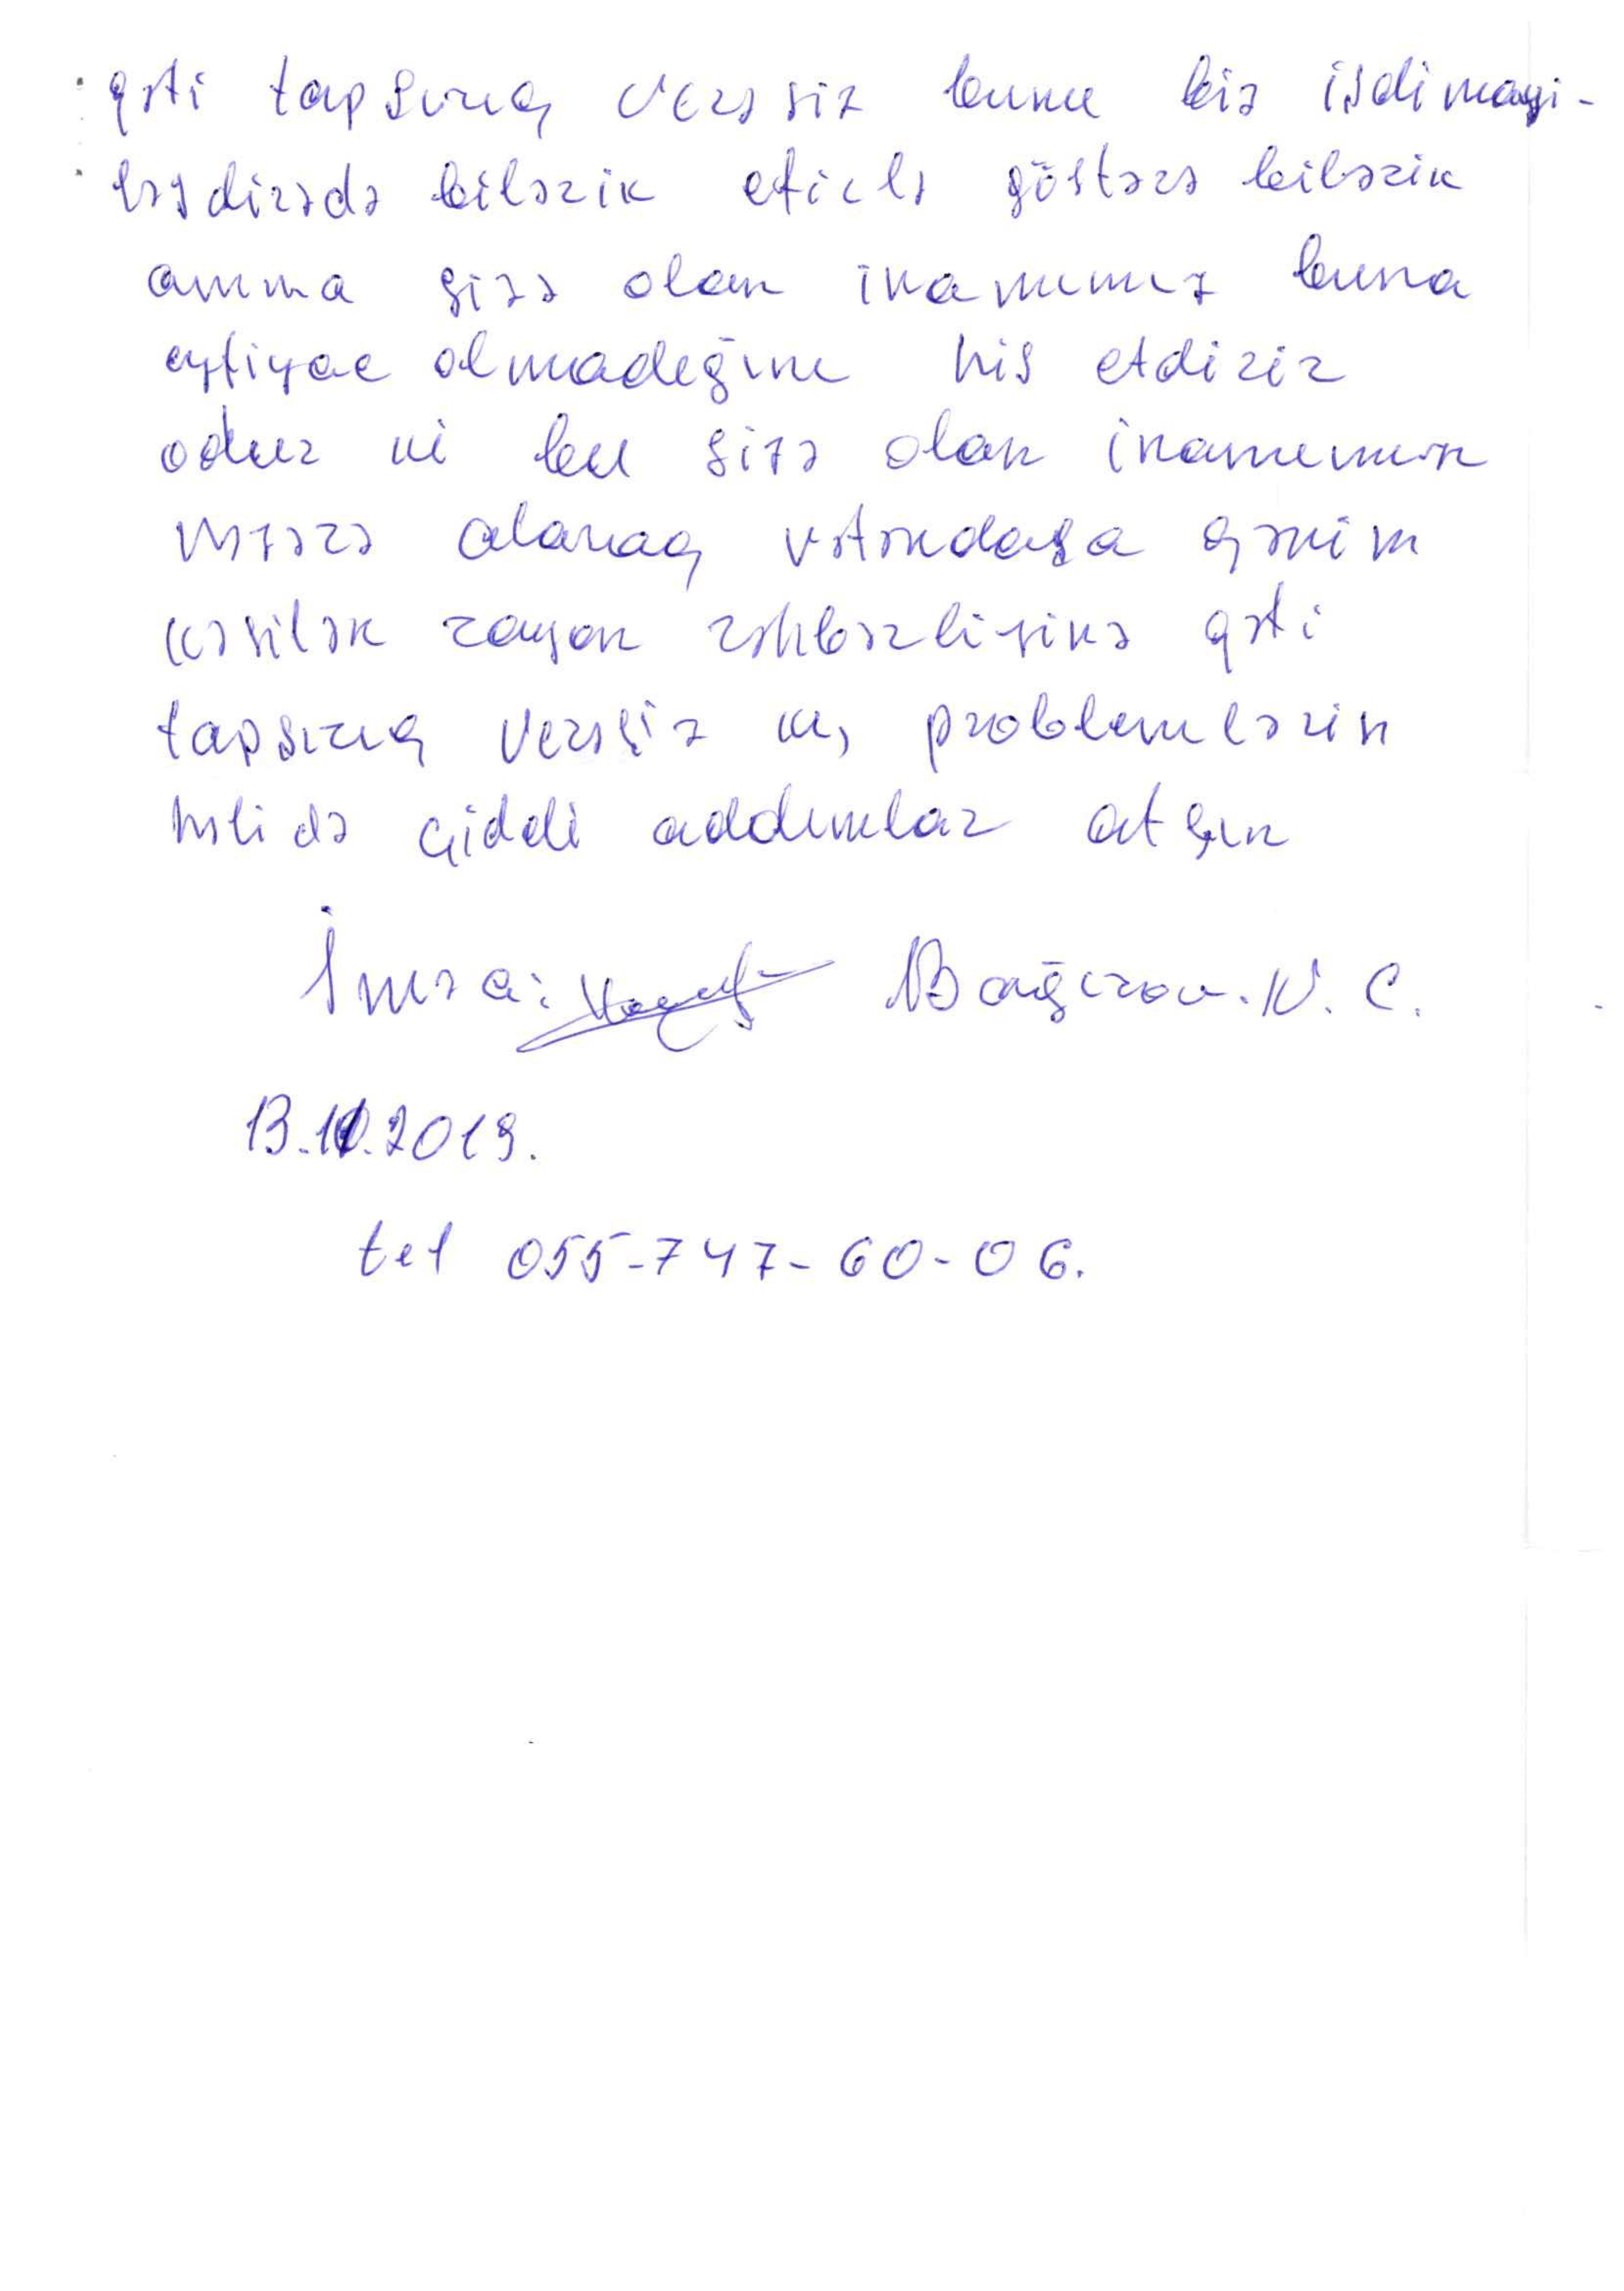 qəti tapşırıq verəsiz bunu biz isdimayi-
ləşdirədə biləzik eticlə göstərə bilərik
amma sizə olan inamımız buna
eytiyac olmadığını his etdirir
odur ki bu sizə olan inamımın
nəzərə alaraq vətəndaşa qənim
kəsilək rayon rəhbərliyinə qəti
tapşırıq verəsiz ki, problemlərin
həlidə ciddi addımlar atsın
İmza: Bağırov. N. C.
13.10.2019.
tel 055-747-60-06.